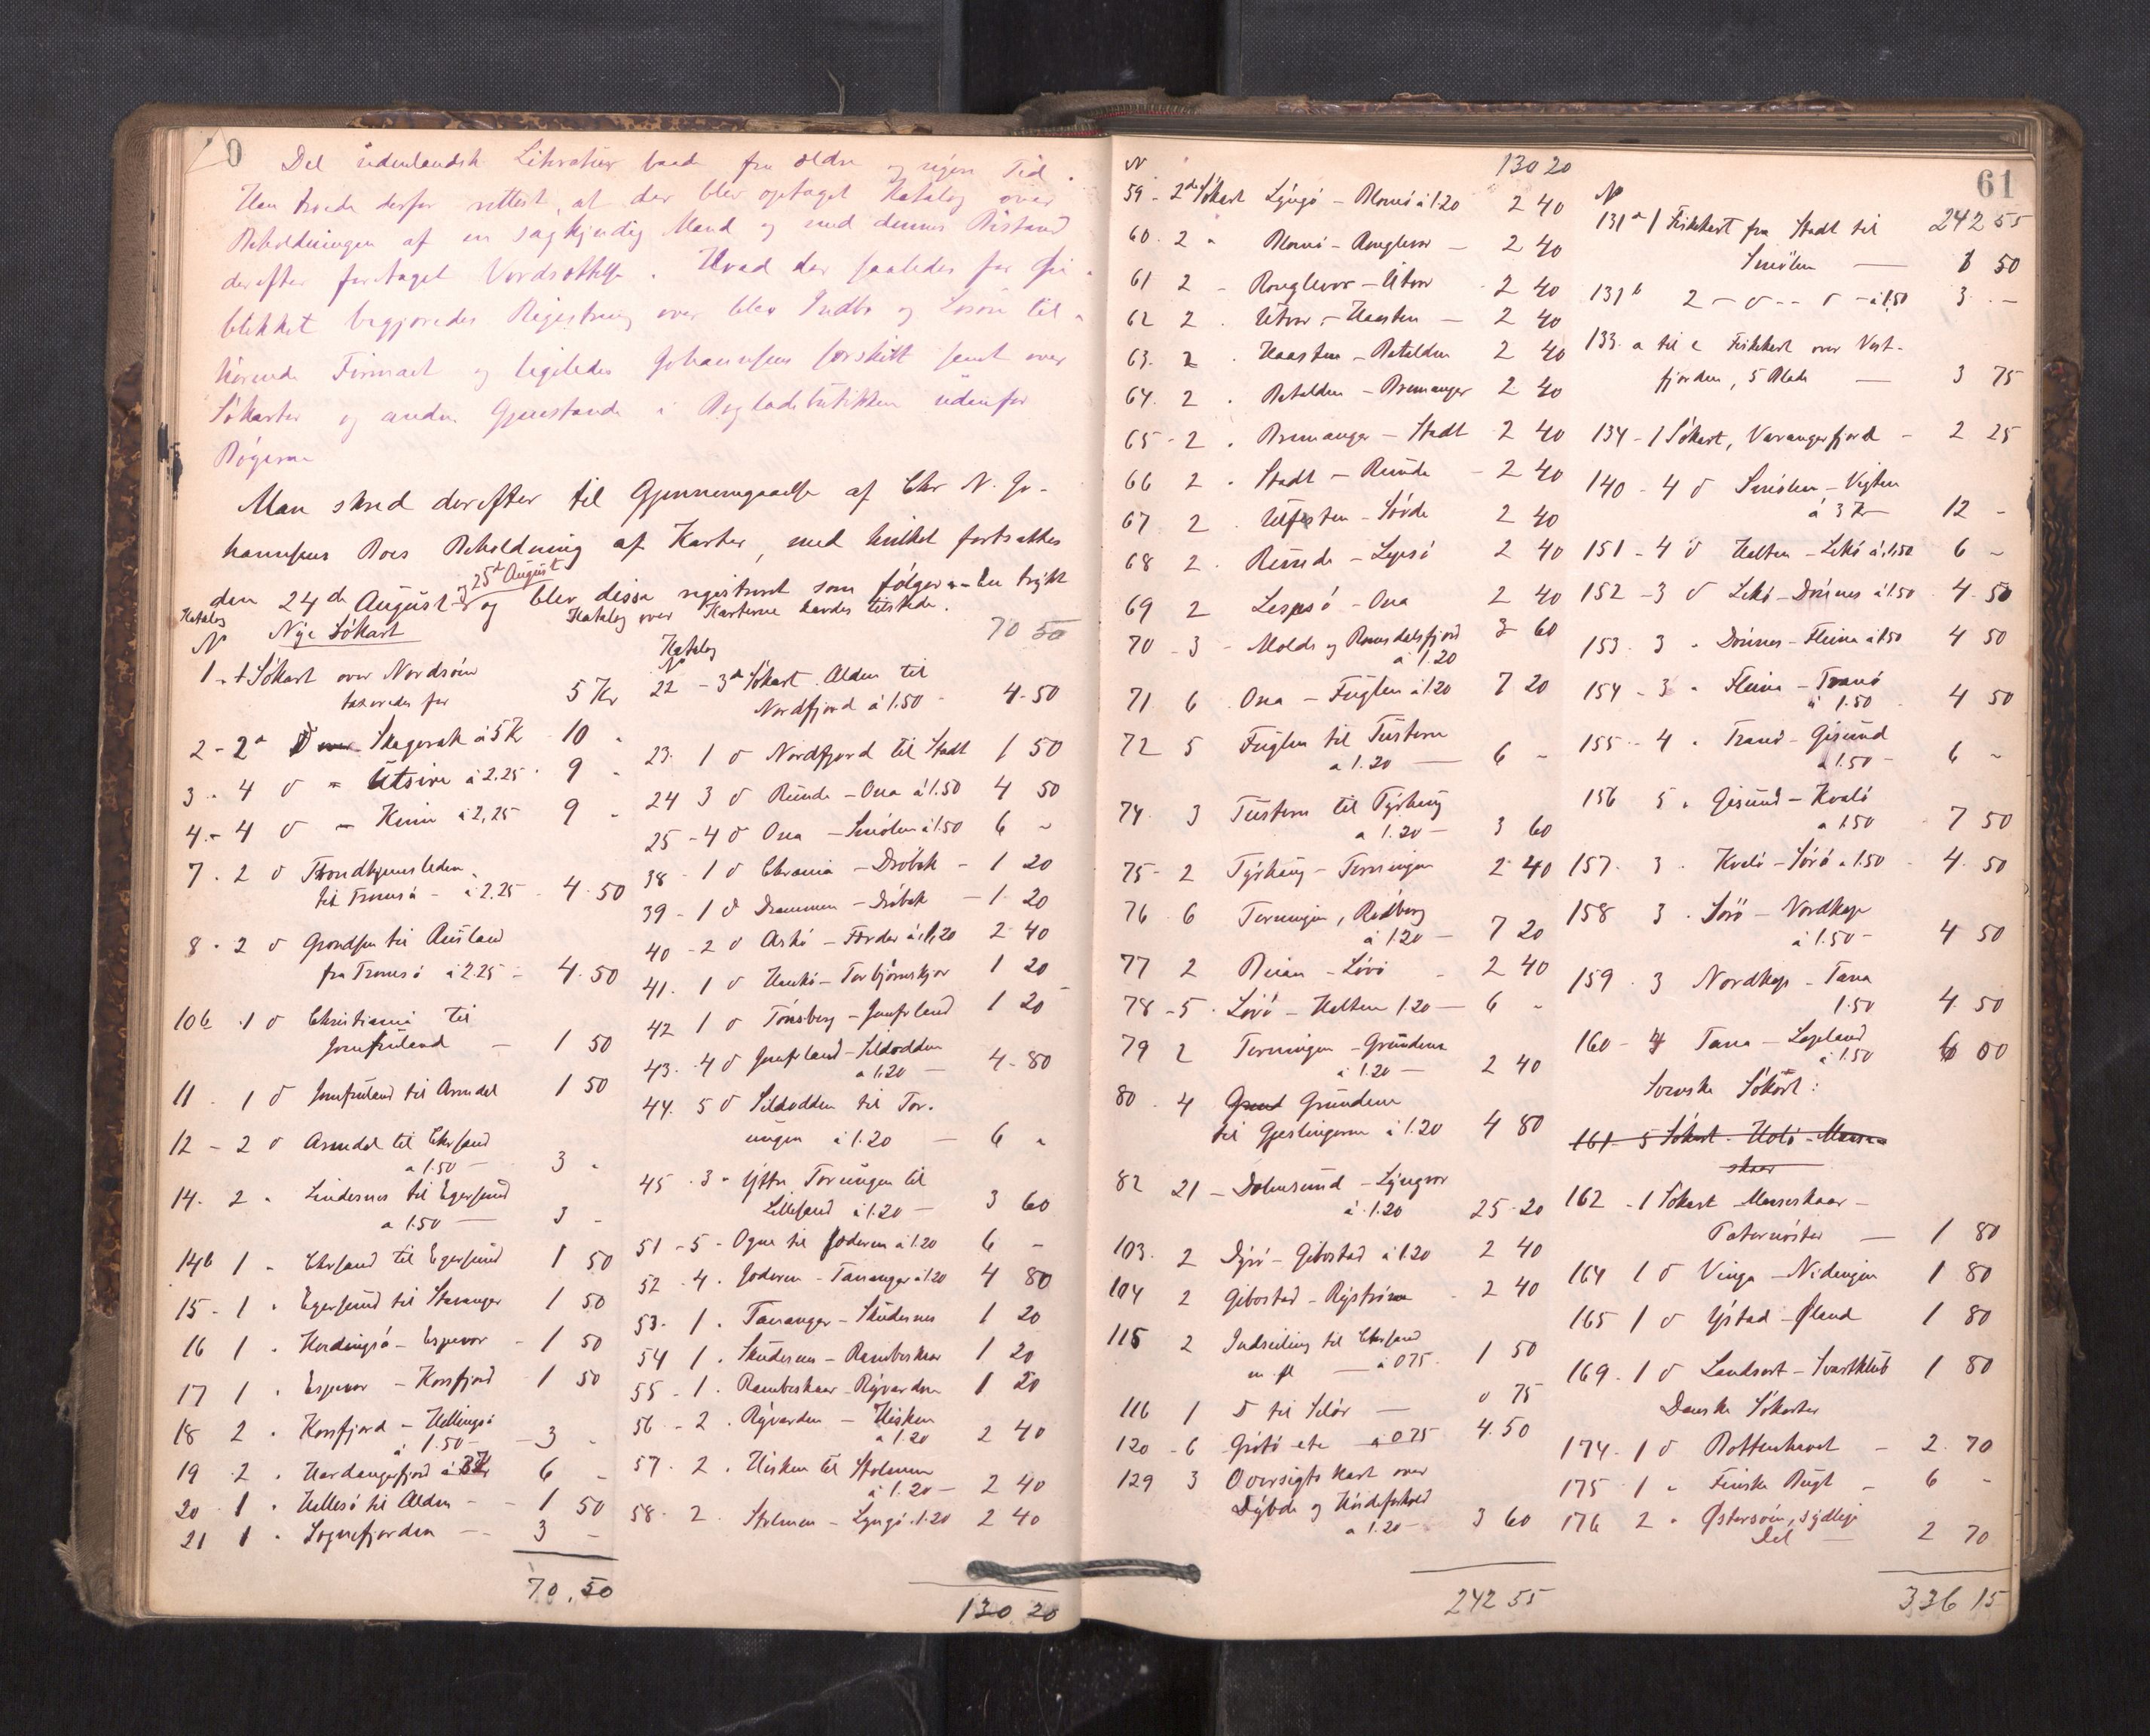 0
Del udenlandsk Literatur baade fra ældre og nyere Tid.
Han troede derfor rettest, at der blev optaget Katalog over
Beholdningen af en sagkyndig Mand og med dennes Bistand
derefter foretaget Værdsættelse. Hvad der saaledes for Øie-
blikket begjæredes Registrering over blev Indbo og Løsøre til-
hørende Firmaet og ligeledes Johannesens særskilt samt over
Søkarter og andre Gjenstande i Bogladebutikken udenfor
Bøgerne
Man skred derefter til Gjennemgaaelse af Chr N. Jo-
hannesens Boes Beholdning af Karter, med hvilket fortsattes
og 25de August
den 24de August og blev disse registreret som følger - En trykt
Katalog over Karterne havdes tilstede.
Katalog
N Nye Søkart
1 - 1 Søkart over Nordsøen
taxeredes for 5 Kr
2 - 2 D Skagerak à 5 Kr 10 -
3 - 4 D " Utsire à 2.25 9 -
4 - 4 D - Kinn à 2,25 9 -
7 - 2 D Trondhjemsleden
til Tromsø - à 2.25 - 4.50
8 - 2 D Grondsen til Rusland
fra Tromsø à 2.25 - 4.50
10b 1 D Christiania til
Jomfruland - 1 50
11 - 1 D Jomfruland til Arendal 1 50
12 - 2 D Arendal til Chrsand
a 1.50 - 3 -
14 - 2 " Lindesnes til Egersund
a 1.50 - 3 -
14b 1 " Chrsand til Egersund 1 50
15 - 1 " Egersund til Stavanger 1 50
16 1 " Hardingsø - Espevær - 1 50
17 1 " Espevær - Korsfjord - 1 50
18 2 " Korsfjord - Hellingsø
à 1.50 - 3 -
19 2 " Hardangerfjord à 3 Kr 6 -
20 1 " Hellesø til Alden - 1 50
21 1 " Sognefjorden - 3 -
70.50
70 50
Katalog
N
22 - 3 D Søkart Alden til
Nordfjord à 1.50 - 4.50
23. 1 D Nordfjord til Stadt 1 50
24 3 D Runde - Ona à 1.50 4 50
25 - 4 D Ona - Smølen à 1.50 6 -
38 - 1 D Chrania - Drøbak - 1 20
39 - 1 D Drammen - Drøbak - 1 20
40 - 2 D Askø - Færder à 1,20 2 40
41. 1 D Hankø - Torbjørnskjær 1 20
42 1 D Tønsberg - Jomfrland 1 20
43. 4 D Jomfrland - Sildodden
a 1.20 - 4.80
44. 5 D Sildodden til Tor-
ungen à 1.20 - 6 "
45 . 3 " Yttre Torungen til
Lillesand à 1.20 - 3 60
51 - 5 - Ogne til Jæderen à 1.20 6 -
52 . 4. Jæderen - Tananger à 1.20 4 80
53 - 1 . Tananger - Skudesnes 1 20
54 1 . Skudesnes - Rambeskaar 1 20
55 - 1 . Rambeskaar - Ryvarden 1 20
56 - 2 . Ryvarden - Hisken
a 1.20 2 40
57. 2 . Hisken til Stolmen
à 1.20 - 2 40
58. 2 . Stolmen - Lyngø 1.20 2 40
130 20
61
N 130 20
59 - 2 de Søkart Lyngø - Blomø à 1.20 2 40
60. 2 " Blomø - Rongevær - 2 40
61 2 - Rongevær - Utvær - 2 40
62 2 . Utvær - Haasten - 2 40
63. 2 . Haasten - Batalden 2 40
64. 2 . Batalden - Bremanger 2 40
65 - 2 . Bremanger - Stadt 2 40
66 2 . Stadt - Runde - 2 40
67 2 . Ulfesten - Søvde 2 40
68 2 . Runde - Lepsø 2 40
69 2 Lepsø - Ona 2 40
70 - 3 - Molde og Romsdalsfjord 3 60
à 1.20
71 6 . Ona - Fuglen à 1.20 7 20
72 5 Fuglen til Tustern
a 1.20 - 6 -
74. 3 Tustern til Tyrhaug
a 1.20 - 3 60
75 - 2 Tyrhaug - Terningen 2 40
76 . 6 Terningen, Rødberg
à 1.20 - 7 20
77 2 Beian - Løvø - 2 40
78 - 5 . Løvø - Halten 1.20 - 6 -
79 2 Terningen - Grundene
à 1.20 - 2 40
80 . 4 Grund Grundene
til Gjæslingerne à 1.20 4 80
82 21 - Dolmsund - Lyngvær
à 1.20 25.20
103. 2 Dyrø - Gibostad à 1.20 2 40
104 2 Gibostad - Rystrøm - 2 40
115 2 Indseiling til Chrsand
m fl - à 0 75. 1 50
116 1 D til Selør - 0 75
120 - 6 Grøtø etc à 0 75 4.50
129 3 Oversigts kart over
Dybde og Høideforhold
a 1.20 - 3 60
242 55
N
242 55
131 a 1 Fiskekart fra Stadt til
Smølen - 1 50
131 b 2 - D - - D - à 1,50 3 . -
133. a til e Fiskekart over Vest-
fjorden, 5 Blade - 3 75
134 - 1 Søkart, Varangerfjord - 2 25
140 - 4 D Smølen - Vigten
à 3 Kr 12 -
151 - 4 D Halten - Lekø à 1.50 6 -
152 - 3 D Lekø - Dønnes à 1.50 4.50
153. 3 " Dønnes - Fleina à 1.50 4 50
154 - 3 " Fleina - Tranø
à 1.50 - 4 50
155 - 4 " Tranø - Gisund
a 1.50 - 6 -
156 5 " Gisund - Kvalø
a 1.50 - 7 50
157. 3 . Kvalø - Sørø a 1.50 - 4.50
158 3 . Sørø - Nordkap
à 1.50 - 4 50
159 . 3 Nordkap - Tana
1.50 4.50
160 - 4 Tana - Lapland
à 1.50 6 00
Svenske Søkort:
161 - 5 Søkart - Holø - Marse-
skaar
162 . 1 Søkart Marseskaar -
Paternoster - 1 80
164 1 D Vinga - Nidingen 1 80
165 1 D Ystad - Øland 1 80
169. 1 D Landsort - Svartklub 1 80
Danske Søkarter
174. 1 D Bottenhavet - 2.70
175 . 1 " Finske Bugt - 6 -
176 2 " Østersøen, sydlige
Del - 2 70
336 15